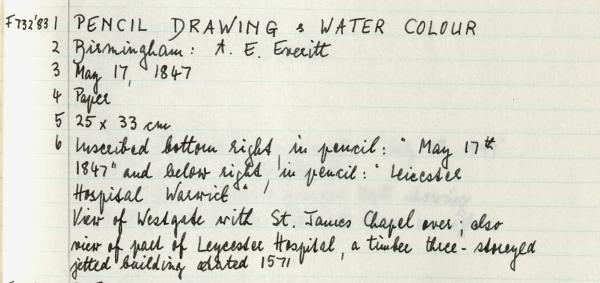 F732'83 1 PENCIL DRAWING & WATER COLOUR
2 Birmingham: A. E. Everitt
3 May 17, 1847
4 Paper
5 25 x 33 cm
6 Inscribed bottom right, in pencil: "May 17th
1847" and below right, in pencil: "Leicester
Hospital Warwick",
View of Westgate with St. James Chapel over; also
view of part of Leycester Hospital, a timber three-storeyed
jetted building dated 1571